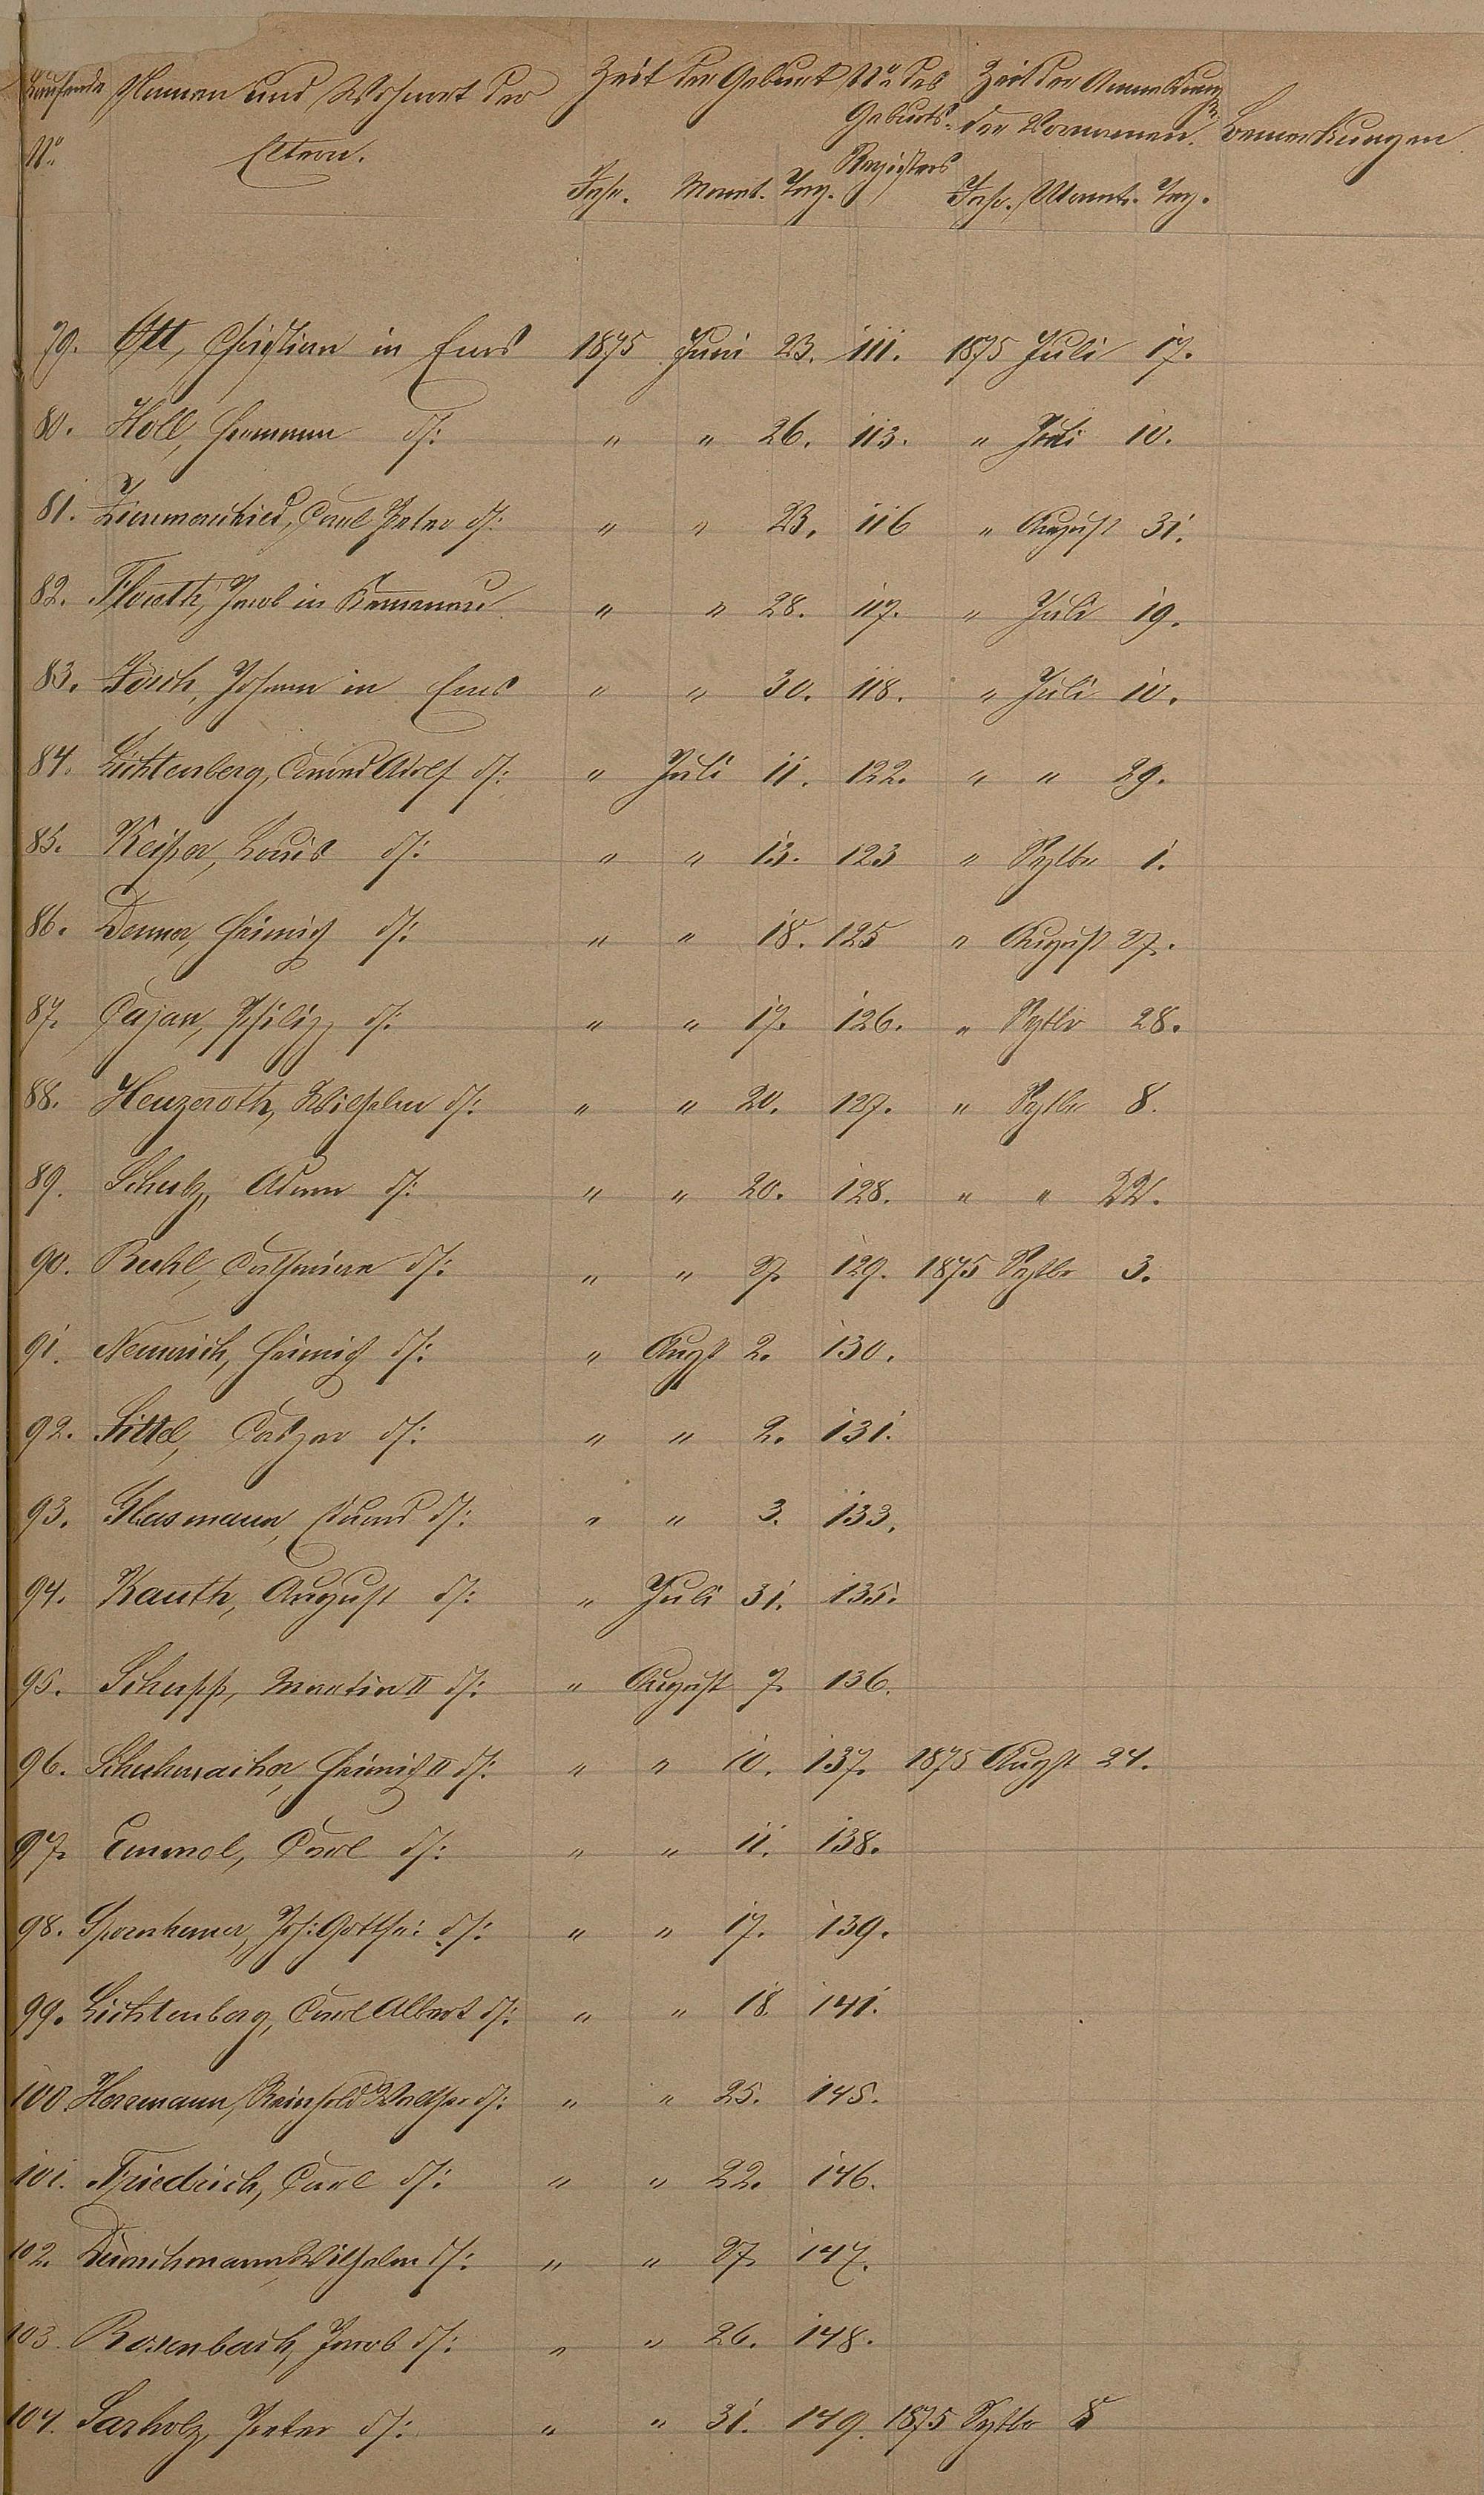 Laufende Namen und Wohnort der Zeit der Geburt No des Zeit der Anmeldung
No Eltern. Geburts- der Vornamen. Bemerkungen
Registers
Jahr. Monat. Tag. Jahr. Monat. Tag.
79. Ott, Christian in Ems 1875 Juni 23. 111. 1875 Juli 17.
80. Holl, Hermann ds: " " 26. 113. " Juli 10.
81. Carl Peter ds: " " 23. 116 " August 31.
82. Flöuth, Jacob in Kemmenau " " 28. 117. " Juli 19.
83. Jösch, Johann in Ems " " 30. 118. " Juli 10.
84. Lichtenberg, Conrad Adolf ds: " Juli 11. 122. " " 29.
85. Keiper, Louis ds: " " 13. 123 " Septbr 1.
86. Denner, Heinrich ds: " " 18. 125 " August 27.
87. Cajan, Philipp ds: " " 17. 126. " Septbr 28.
88. Henzeroth, Wilhelm ds: " " 20. 127. " Septbr 8.
89. Schulz, Adam ds: " " 20. 128. " " 22.
90. Catharina ds: " " 27. 129. 1875 Septbr 3.
91. Nemnich, Heinrich ds: " Augst 2. 130.
92. Sittel, Caspar ds: " " 2. 131.
93. Glasmann, Eduard ds: " " 3. 133.
94. Kauth, August ds: " Juli 31. 135.
95. Schupp, Martin II ds: " August 7. 136.
96. Schuhmacher, Heinrich II ds: " " 10. 137. 1875 Augst 24.
97. Emmel, Carl ds: " " 11. 138.
98. Spornhauer, Joh: Gottfr: ds: " " 17. 139.
99. Lichtenberg, Carl Albert ds: " " 18. 141.
100. Herrmann, Reinhold Walther ds: " " 25. 145.
101. Friedrich, Carl ds: " " 22. 146.
102. Wilhelm ds: " " 27. 147.
103. Rosenbach, Jacob ds: " " 26. 148.
104. Sarholz, Peter ds: " " 31. 149. 1875 Septbr 8